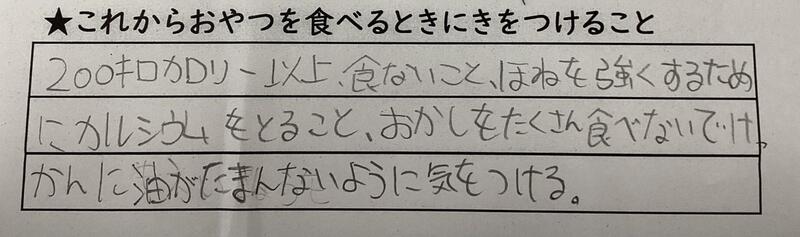 ★これからおやつを食べるときにきをつけること
200キロカロリー以上、食ないこと、ほねを強くするため
にカルシウムをとること、おかしをたくさん食べないでけっ
かんに油がたまんないように気をつける。